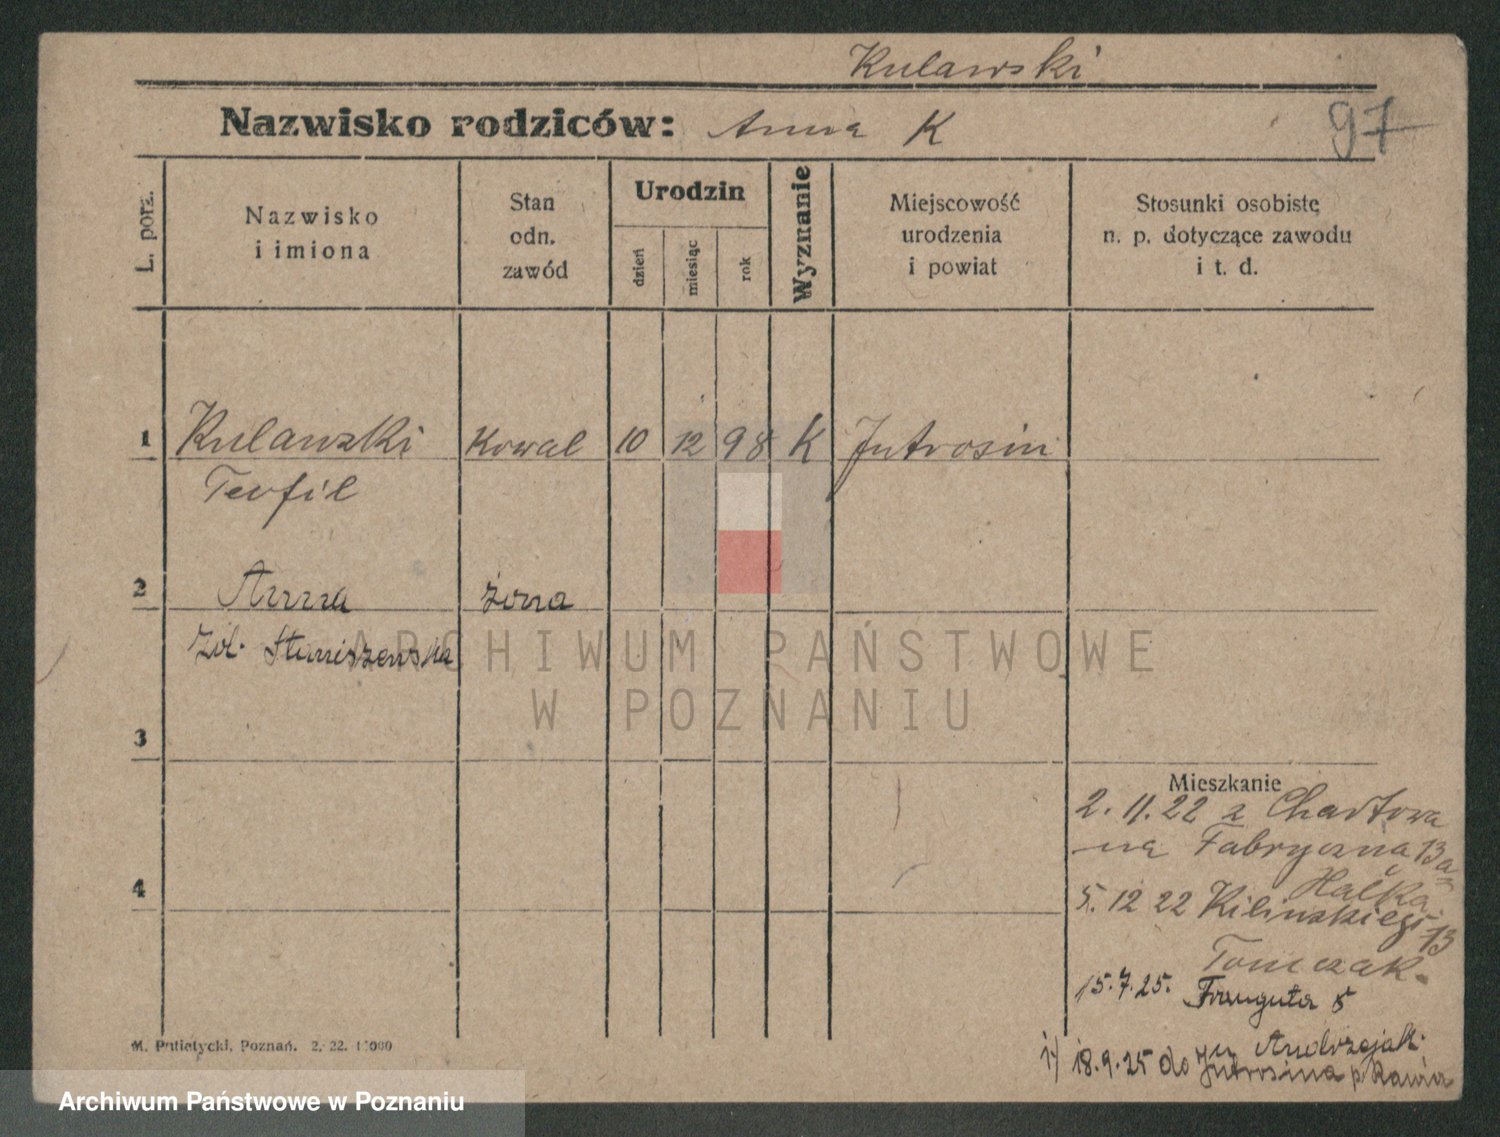 Kulawski
Nazwisko rodziców: Anna K
97
L. porz.
Nazwisko
i imiona
Stan
odn.
zawód
Urodzin
dzień
miesiąc
rok
Wyznanie
Miejscowość
urodzenia
i powiat
Stosunki osobiste
n. p. dotyczące zawodu
i t. d.
1 Kulawski Kowal 10 12 98 K Jutrosin
Teofil
2 Anna żona
zd. Staniszewska
ARCHIWUM PAŃSTWOWE
W POZNANIU
3
Mieszkanie
2. 11. 22 z Chartowa
na Fabryczna 13a
4
Halka
5. 12 22 Kilinskiego 13
Tomczak.
15. 7. 25. Trauguta 5
u Andrzejak
1) 18. 9. 25 do Jutrosina p Rawicz
M. Putiatycki, Poznań. 2. 22.
Archiwum Państwowe w Poznaniu